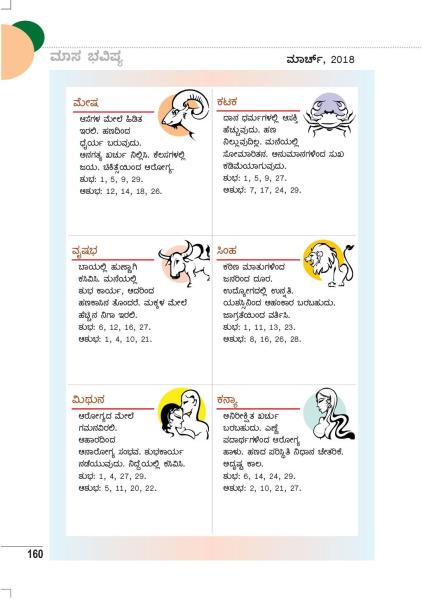 ಮಾಸ ಭವಿಷ್ಯ
ಮಾರ್ಚ್, 2018
ಮೇಷ
ಆಸೆಗಳ ಮೇಲೆ ಹಿಡಿತ
ಇರಲಿ. ಹಣದಿಂದ
ಧೈರ್ಯ ಬರುವುದು.
ಅನಗತ್ಯ ಖರ್ಚು ನಿಲ್ಲಿಸಿ. ಕೆಲಸಗಳಲ್ಲಿ
ಜಯ. ಚಿಕಿತ್ಸೆಯಿಂದ ಆರೋಗ್ಯ.
ಶುಭ: 1, 5, 9, 29.
ಅಶುಭ: 12, 14, 18, 26.
ಕಟಕ
ದಾನ ಧರ್ಮಗಳಲ್ಲಿ ಆಸಕ್ತಿ
ಹೆಚ್ಚುವುದು. ಹಣ
ನಿಲ್ಲುವುದಿಲ್ಲ. ಮನೆಯಲ್ಲಿ
ಸೋಮಾರಿತನ. ಅನುಮಾನಗಳಿಂದ ಸುಖ
ಕಡಿಮೆಯಾಗುವುದು.
ಶುಭ: 1, 5, 9, 27.
ಅಶುಭ: 7, 17, 24, 29.
ವೃಷಭ
ಬಾಯಲ್ಲಿ ಹುಣ್ಣಾಗಿ
ಕಸಿವಿಸಿ. ಮನೆಯಲ್ಲಿ
ಶುಭ ಕಾರ್ಯ, ಆದರಿಂದ
ಹಣಕಾಸಿನ ತೊಂದರೆ. ಮಕ್ಕಳ ಮೇಲೆ
ಹೆಚ್ಚಿನ ನಿಗಾ ಇರಲಿ.
ಶುಭ: 6, 12, 16, 27.
ಅಶುಭ: 1, 4, 10, 21.
ಸಿಂಹ
ಕಠಿಣ ಮಾತುಗಳಿಂದ
ಜನರಿಂದ ದೂರ.
ಉದ್ಯೋಗದಲ್ಲಿ ಉನ್ನತಿ.
ಯಶಸ್ಸಿನಿಂದ ಅಹಂಕಾರ ಬರಬಹುದು.
ಜಾಗ್ರತೆಯಿಂದ ವರ್ತಿಸಿ.
ಶುಭ: 1, 11, 13, 23.
ಅಶುಭ: 8, 16, 26, 28.
ಮಿಥುನ
ಆರೋಗ್ಯದ ಮೇಲೆ
ಗಮನವಿರಲಿ.
ಆಹಾರದಿಂದ
ಅನಾರೋಗ್ಯ ಸಂಭವ. ಶುಭಕಾರ್ಯ
ನಡೆಯುವುದು. ನಿದ್ದೆಯಲ್ಲಿ ಕಸಿವಿಸಿ.
ಶುಭ: 1, 4, 27, 29.
ಅಶುಭ: 5, 11, 20, 22.
ಕನ್ಯಾ
ಅನಿರೀಕ್ಷಿತ ಖರ್ಚು
ಬರಬಹುದು. ಎಣ್ಣೆ
ಪದಾರ್ಥಗಳಿಂದ ಆರೋಗ್ಯ
ಹಾಳು. ಹಣದ ಪರಿಸ್ಥಿತಿ ನಿಧಾನ ಚೇತರಿಕೆ.
ಅದೃಷ್ಟ ಕಾಲ.
ಶುಭ: 6, 14, 24, 29.
ಅಶುಭ: 2, 10, 21, 27.
160